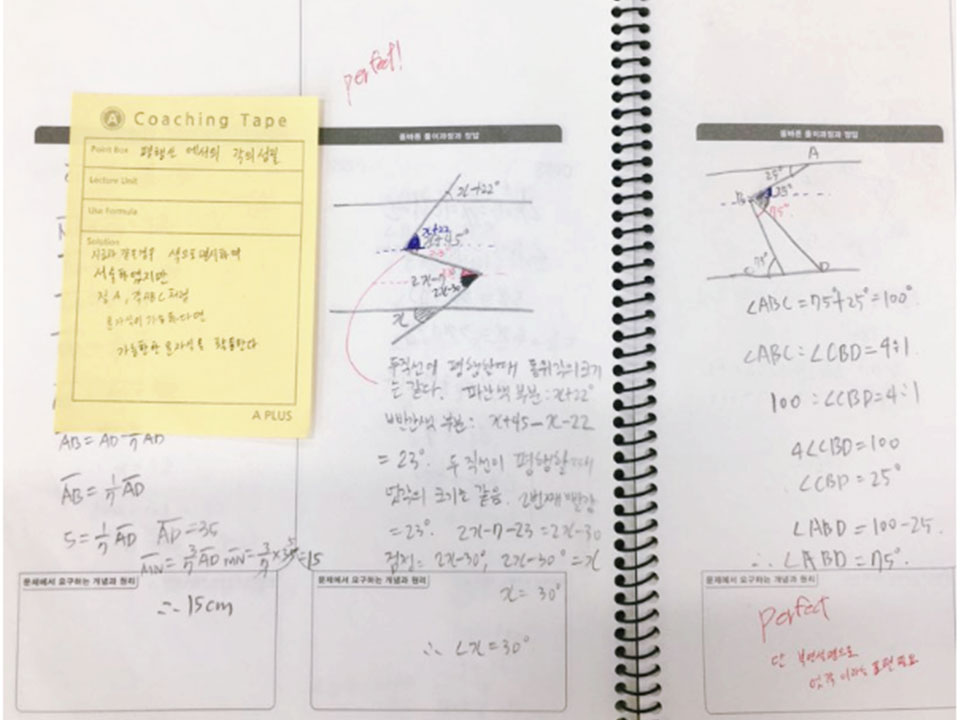 perfect!
Coaching Tape
Point Box 평행선 에서의 각의성질
Lecture Unit
Use Formula
Solution
색으로 표시하여
서술하였지만
점 A, 각ABC 처럼
가능한한 문자식을 활용한다
A PLUS
AB = AD
AB = 1/7 AD
5 = 1/7 AD AD = 35
MN = 3/7 AD MN = 3/7 × 35 = 15
문제에서 요구하는 개념과 원리
∴ 15cm
올바른 풀이과정과 정답
x+22°
x+22
x+45°
2x-7
2x-30
x
두직선이 평행할때 동위각의크기
는 같다. 파란색 부분: x+22°
빨간색 부분: x+45-x-22
= 23°. 두 직선이 평행할때
엇각의 크기는 같음. 2번째 빨강
= 23°. 2x-7-23 = 2x-30
검정: 2x-30°, 2x-30° = x
문제에서 요구하는 개념과 원리
x = 30°
∴ ∠x = 30°
올바른 풀이과정과 정답
A
25°
B
25°
75°
C
75°
D
∠ABC = 75°+25° = 100°
∠ABC : ∠CBD = 4:1
100 : ∠CBD = 4:1
4∠CBD = 100
∠CBD = 25°
∠ABD = 100-25
∴ ∠ABD = 75°
문제에서 요구하는 개념과 원리
perfect
단 부연설명으로
엇각 이라는 표현 필요